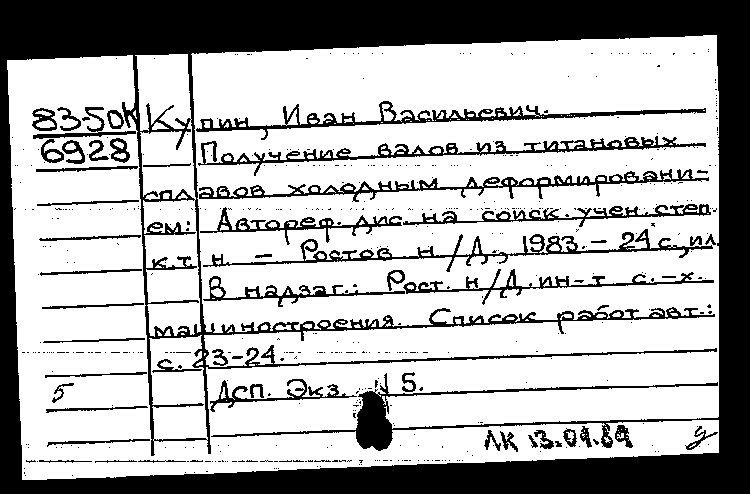 83-50К Купин, Иван Васильевич.
6928 Получение валов из титановых
сплавов холодным деформировани-
ем: Автореф. дис. на соиск. учен. степ.
к.т.н. — Ростов н/Д., 1983. — 24 с., ил.
В надзаг.: Рост. н/Д. ин-т с.-х.
машиностроения. Список работ авт.:
с. 23-24.
5 ДСП. Экз. N 5.
ЛК